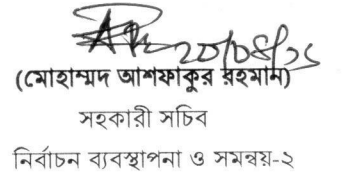 ২০/০৪/২৫
(মোহাম্মদ আশফাকুর রহমান)
সহকারী সচিব
নির্বাচন ব্যবস্থাপনা ও সমন্বয়-২